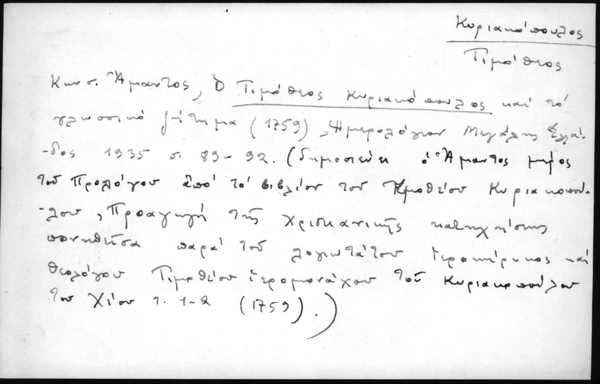 Κυριακόπουλος
Τιμόθεος
Κωνσ. Ἄμαντος, Ὁ Τιμόθεος Κυριακόπουλος καί τό
γλωσσικό ζήτημα (1759), Ἡμερολόγιον Μεγάλης Ἑλλά-
-δος 1935 σ. 89-92. (δημοσιεύει ὁ Ἄμαντος μέρος
τοῦ Προλόγου ἀπό τό βιβλίον τοῦ Τιμοθέου Κυριακοπού-
-λου, Προαγωγή τῆς χριστιανικῆς κατηχήσεως
πονηθεῖσα παρά τοῦ λογιωτάτου ἱεροκήρυκος καί
θεολόγου Τιμοθέου ἱερομονάχου τοῦ Κυριακοπούλου
τοῦ Χίου τ. 1-2 (1759).)